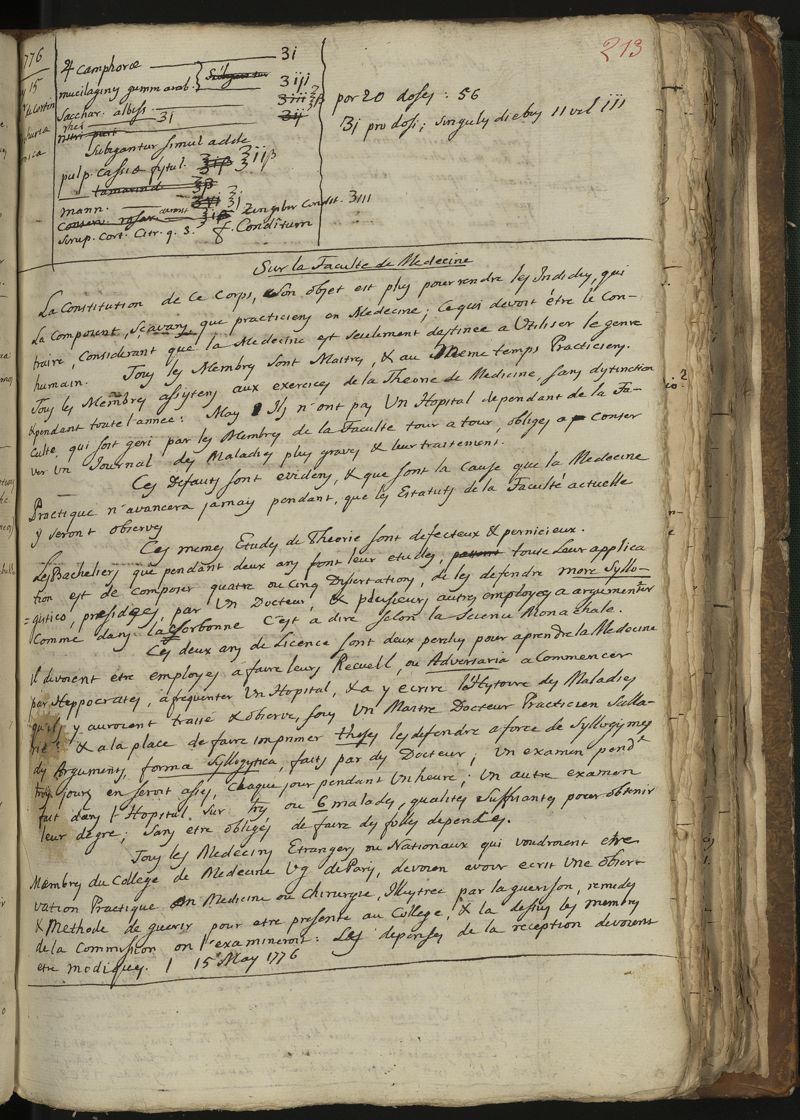 213
776
15
♃ Camphoræ — ʒi
mucilaginy gumm arab. ʒiij
Sacchar. albiss
ʒi
Subigantur simul adde
pulp. Cassiæ fystul. ʒiiß
tamarind ʒß
mann. ʒi
Conserv. rosar. Zingiber Condit. ʒiii
Syrup. Cort. Citr. q. s. f. Conditum
por 20 doses : 56
ʒi pro dosi; singuly dieby II vel iij
Sur la Faculte de Medecine
La Constitution de Ce Corps, Son objet est plus pour rendre les Individus, qui
La Composent, Sçavans, que practiciens en Medecine; Ce qui devoit être le Con-
traire, Considerant que la Medecine est seulement destinee a Utiliser le genre
humain. Tous les Membres sont Maitres, & au Meme temps Practiciens.
Tous les Membres assystent aux exercices de la Theorie de Medicine, sans dystinction
& pendant toute l'annee: Mays Ils n'ont pas Un Hopital dependant de la Fa-
culte, qui soit geri par les Membres de la Faculte tour a tour, obliges a conser
ver Un Journal des Maladies plus graves & leur traitement.
Ces Defauts sont evidens, & que sont la Cause que la Medecine
Practique n'avancera jamays pendant, que les Estatuts de la Faculté actuelle
y seront observes
Ces memes Etudes de Theorie sont defecteux & pernicieux.
Les Bacheliers que pendant deux ans font leur etudes, toute Leur applica
tion est de Composer quatre ou Cinq Dissertations, de les defendre more syllo-
gistico, presidees, par Un Docteur, & plusieurs autres employes a argumenter
Comme dans la Sorbonne C'est a dire selon la Science Monachale.
Ces deux ans de Licence sont deux perdus pour aprendre la Medecine
Il devoient etre employes a faire leurs Recuell, ou Adversaria a Commencer
par Heppocrates, a frequenter Un Hopital, & a y ecrire l'Hystoire des Maladies
qu'ils y auroient traité & observé, sous Un Maitre Docteur Practicien Salla-
rié: & a la place de faire imprimer theses les defendre a force de Syllogysmes
des Arguments, forma Syllogystica, faits par des Docteur; Un examen pendt
trois jours en seroit assez, Chaque jour pendant Un heure; Un autre examen
fait dans l'Hopital, sur trois ou 6 malades, qualites suffisantes pour obtenir
leur degre; Sans etre obligés de faire des folles depences.
Tous les Medecins Etrangers ou Nationaux qui voudroient etre
Membres du College de Medecine Vg de Parys, devoien avoir ecrit Une obser
vation Practique en Medicine ou Chirurgie, Illustree par la guerison, remedes
& Methode de guerir pour etre presente au College, & la dessus les membres
de la Commission on l'examineront: Les depenses de la reception devoient
etre modiques. 15 May 1776